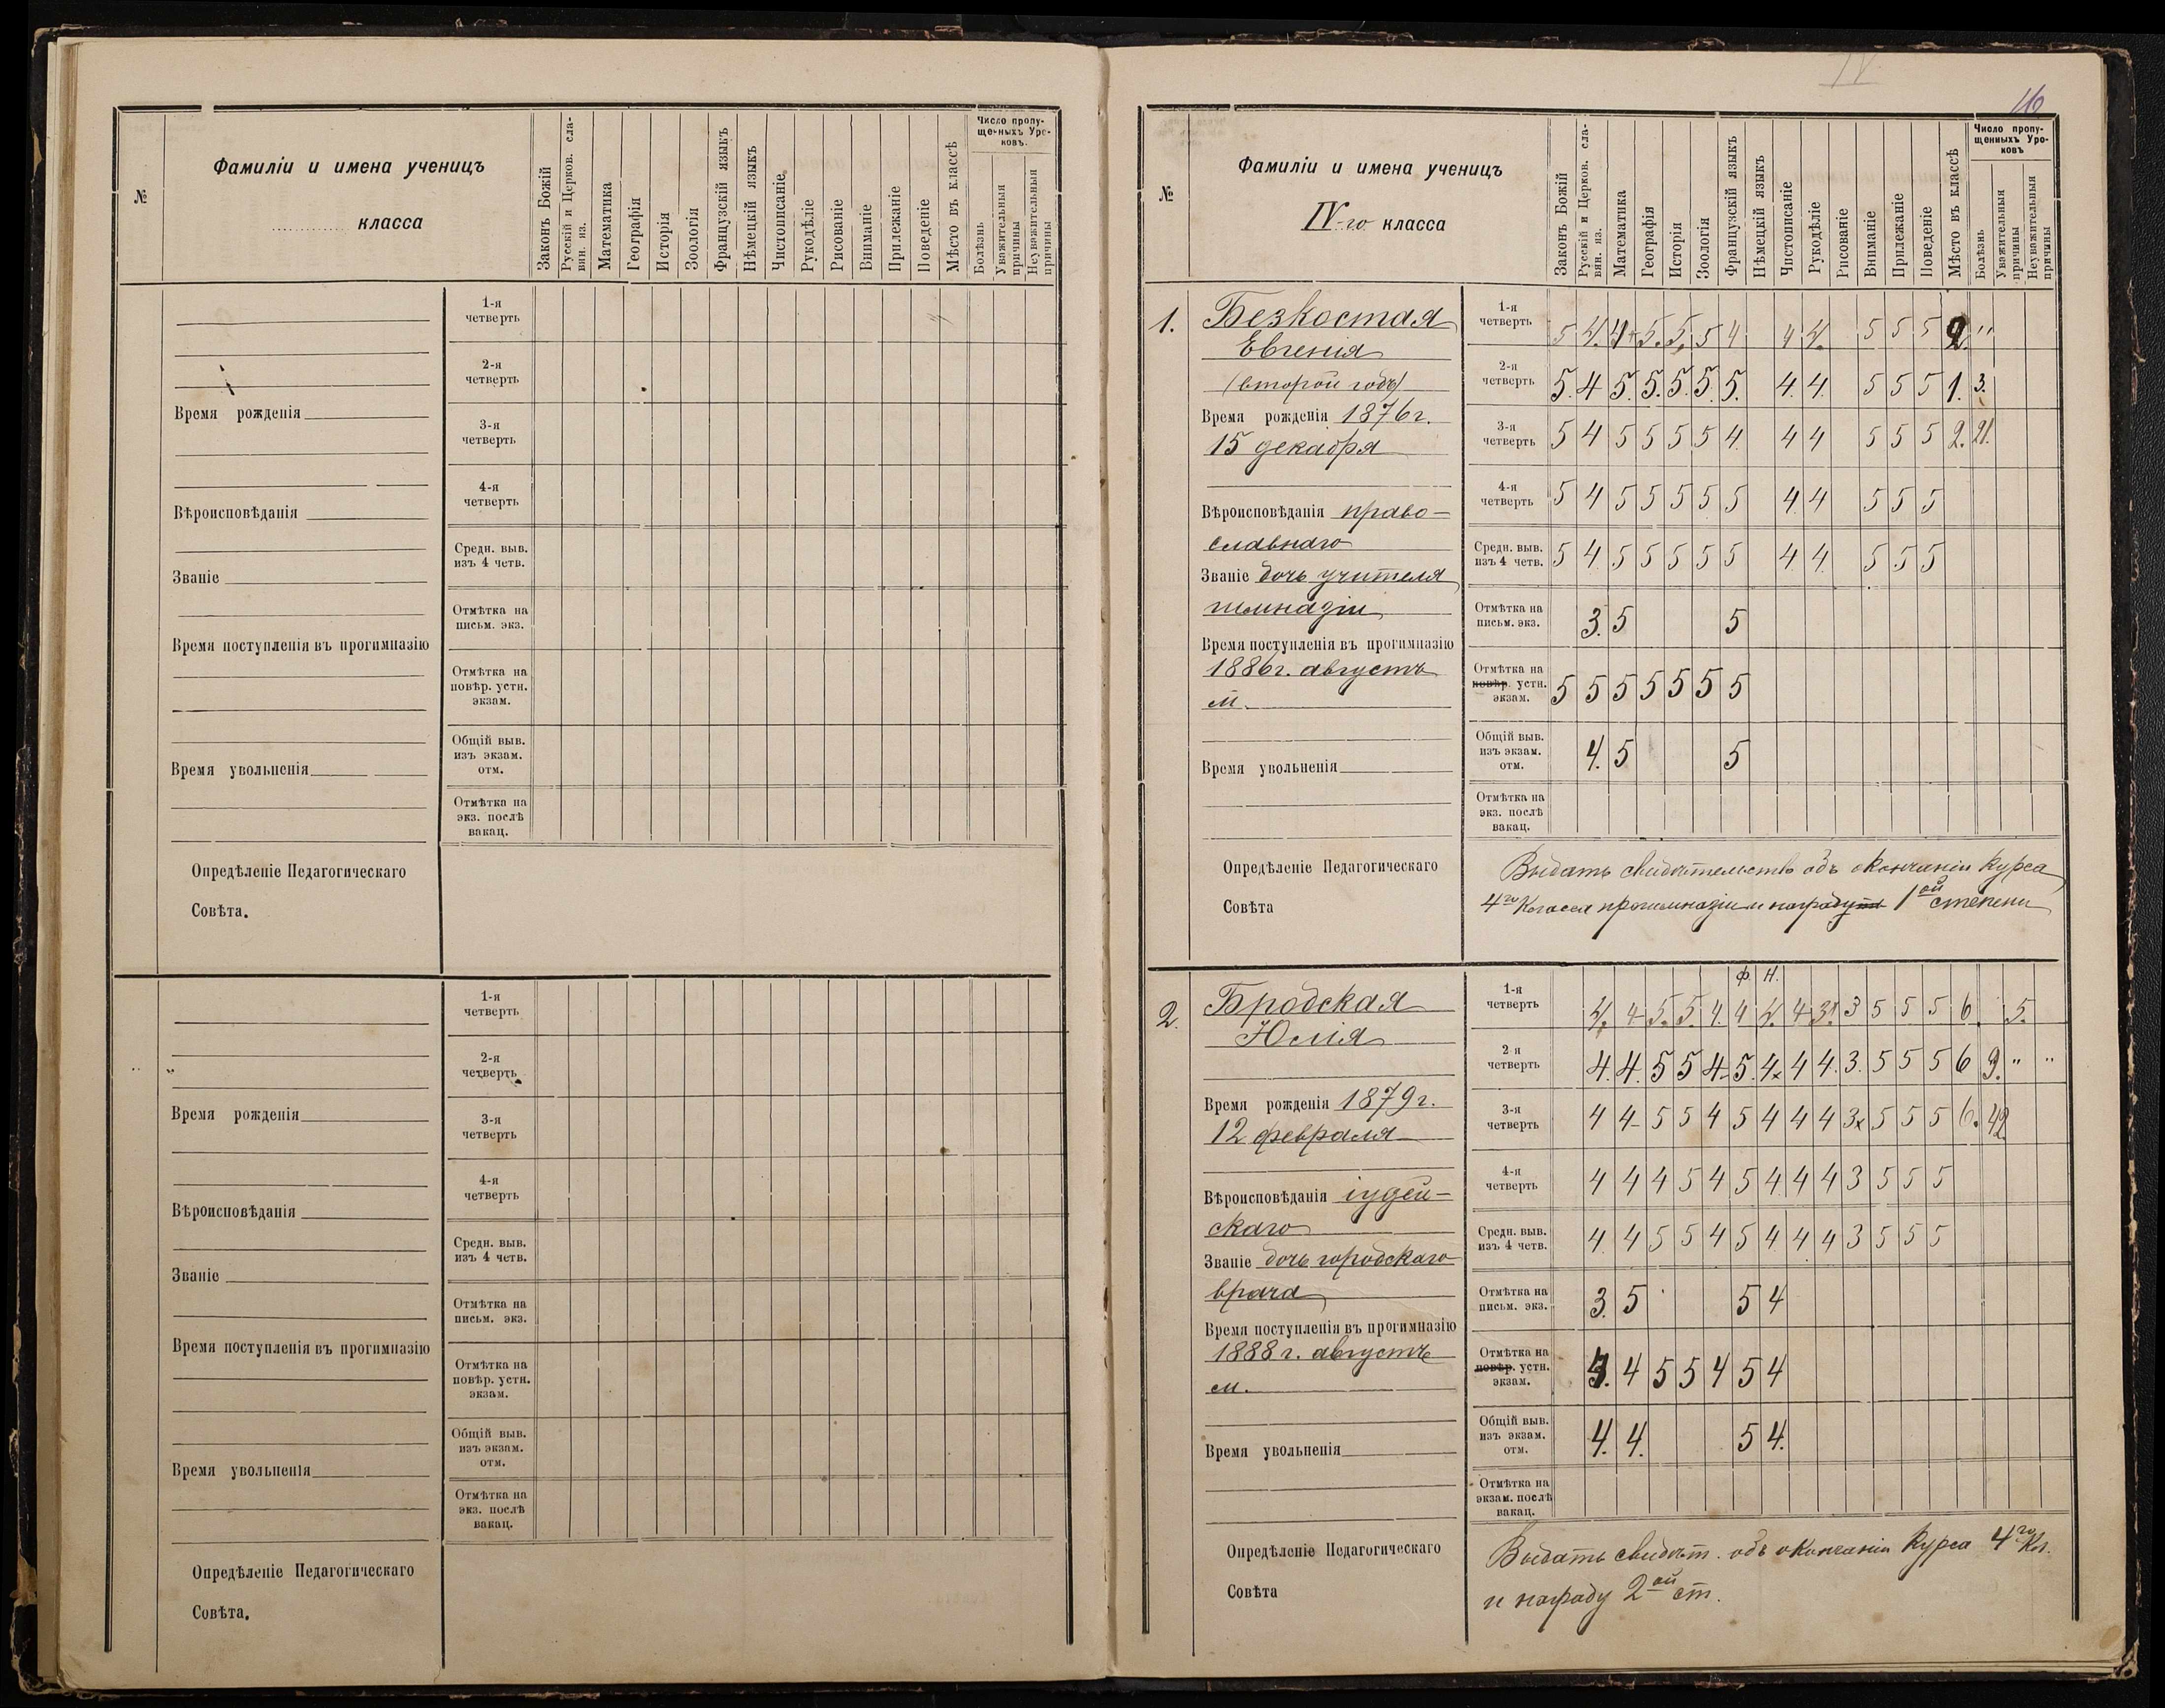 №
Фамиліи и имена ученицъ
класса
Законъ Божій
Русскій и Церков. сла-
вян. яз.
Математика
Географія
Исторія
Зоологія
Французскій языкъ
Нѣмецкій языкъ
Чистописаніе
Рукодѣліе
Рисованіе
Вниманіе
Прилежаніе
Поведеніе
Мѣсто въ классѣ
Число пропу-
щенныхъ Уро-
ковъ.
Болѣзнь
Уважительныя
причины
Неуважительныя
причины
1-я
четверть
2-я
четверть
Время рожденія
3-я
четверть
4-я
четверть
Вѣроисповѣданія
Средн. выв.
изъ 4 четв.
Званіе
Отмѣтка на
письм. экз.
Время поступленія въ прогимназію
Отмѣтка на
повѣр. устн.
экзам.
Общій выв.
изъ экзам.
отм.
Время увольненія
Отмѣтка на
экз. послѣ
вакац.
Опредѣленіе Педагогическаго
Совѣта.
1-я
четверть
2-я
четверть
Время рожденія
3-я
четверть
4-я
четверть
Вѣроисповѣданія
Средн. выв.
изъ 4 четв.
Званіе
Отмѣтка на
письм. экз.
Время поступленія въ прогимназію
Отмѣтка на
повѣр. устн.
экзам.
Общій выв.
изъ экзам.
отм.
Время увольненія
Отмѣтка на
экз. послѣ
вакац.
Опредѣленіе Педагогическаго
Совѣта.
IV
№
Фамиліи и имена ученицъ
IV-го класса
Законъ Божій
Русскій и Церков. сла-
вян. яз.
Математика
Географія
Исторія
Зоологія
Французскій языкъ
Нѣмецкій языкъ
Чистописаніе
Рукодѣліе
Рисованіе
Вниманіе
Прилежаніе
Поведеніе
Мѣсто въ классѣ
Число пропу-
щенныхъ Уро-
ковъ
Болѣзнь
Уважительныя
причины
Неуважительныя
причины
1.
Безкостая
Евгенія
(второй годъ)
Время рожденія 1876 г.
15 декабря
Вѣроисповѣданія право-
славнаго
Званіе дочь учителя
гимназіи
Время поступленія въ прогимназію
1886 г. августъ
м.
Время увольненія
1-я
четверть 5 4. 4+ 5. 5. 5 4 4 4. 5 5 5 2. "
2-я
четверть 5. 4 5. 5. 5. 5. 5. 4. 4. 5 5 5 1. 3.
3-я
четверть 5 4 5 5 5 5 4. 4 4 5 5 5 2. 21.
4-я
четверть 5 4 5 5 5 5 5 4. 4 5 5 5
Средн. выв.
изъ 4 четв. 5 4. 5 5 5 5 5 4. 4. 5. 5 5
Отмѣтка на
письм. экз. 3. 5 5
Отмѣтка на
повѣр. устн.
экзам. 5 5 5 5 5 5 5
Общій выв.
изъ экзам.
отм. 4. 5 5
Отмѣтка на
экз. послѣ
вакац.
Опредѣленіе Педагогическаго
Совѣта
Выдать свидѣтельство объ окончаніи курса
4го класса прогимназіи и награду 1ой степени
2.
Бродская
Юлія
Время рожденія 1879 г.
12 февраля
Вѣроисповѣданія іудей-
скаго
Званіе дочь городскаго
врача
Время поступленія въ прогимназію
1888 г. августъ
м.
Время увольненія
Ф. Н.
1-я
четверть 4. 4 5. 5. 4. 4 4. 4 3 5 5 5 6. 5.
2-я
четверть 4. 4. 5 5 4- 5. 4x 4 4. 3. 5 5 5 6 9. " "
3-я
четверть 4 4- 5 5 4 5 4 4 4 3x 5 5 5 6. 42
4-я
четверть 4 4 4 5 4 5 4. 4 4 3 5 5 5
Средн. выв.
изъ 4 четв. 4 4 5 5 4 5 4 4 4 3 5 5 5
Отмѣтка на
письм. экз. 3. 5 5 4
Отмѣтка на
повѣр. устн.
экзам. 4 5 5 4 5 4
Общій выв.
изъ экзам.
отм. 4. 4. 5 4.
Отмѣтка на
экзам. послѣ
вакац.
Опредѣленіе Педагогическаго
Совѣта
Выдать свидѣт. объ окончаніи курса 4го кл.
и награду 2ой ст.